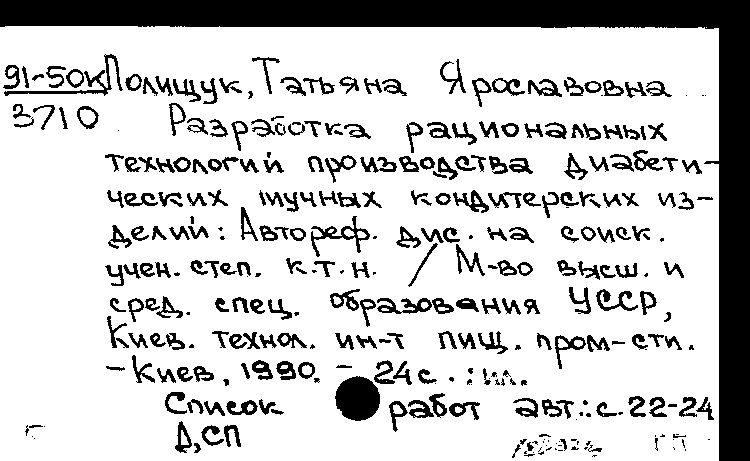 91-50К Полищук, Татьяна Ярославовна
3710 Разработка рациональных
технологий производства диабети-
ческих мучных кондитерских из-
делий: Автореф. дис. на соиск.
учен. степ. к.т.н. / М-во высш. и
сред. спец. образования УССР,
Киев. технол. ин-т пищ. пром-сти.
- Киев, 1990. - 24 с. : ил.
Список работ авт.: с. 22-24
ДСП